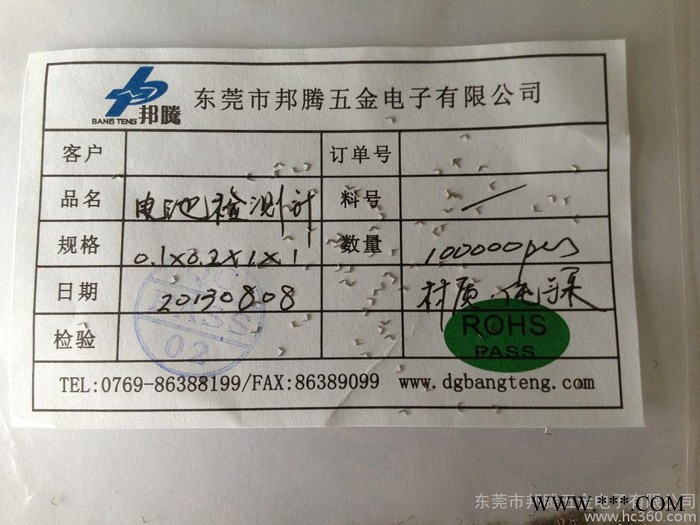 BANG TENG 邦腾 东莞市邦腾五金电子有限公司
客户 订单号
品名 电池检测计 料号 /
规格 0.1x0.2x1x1 数量 100000pcs
日期 20130808 材质:纯镍
检验
PASS
02
ROHS
PASS
TEL:0769-86388199/FAX:86389099 www.dgbangteng.com
WWW.***.COM
东莞市邦腾五金电子有限公司
www.hc360.com